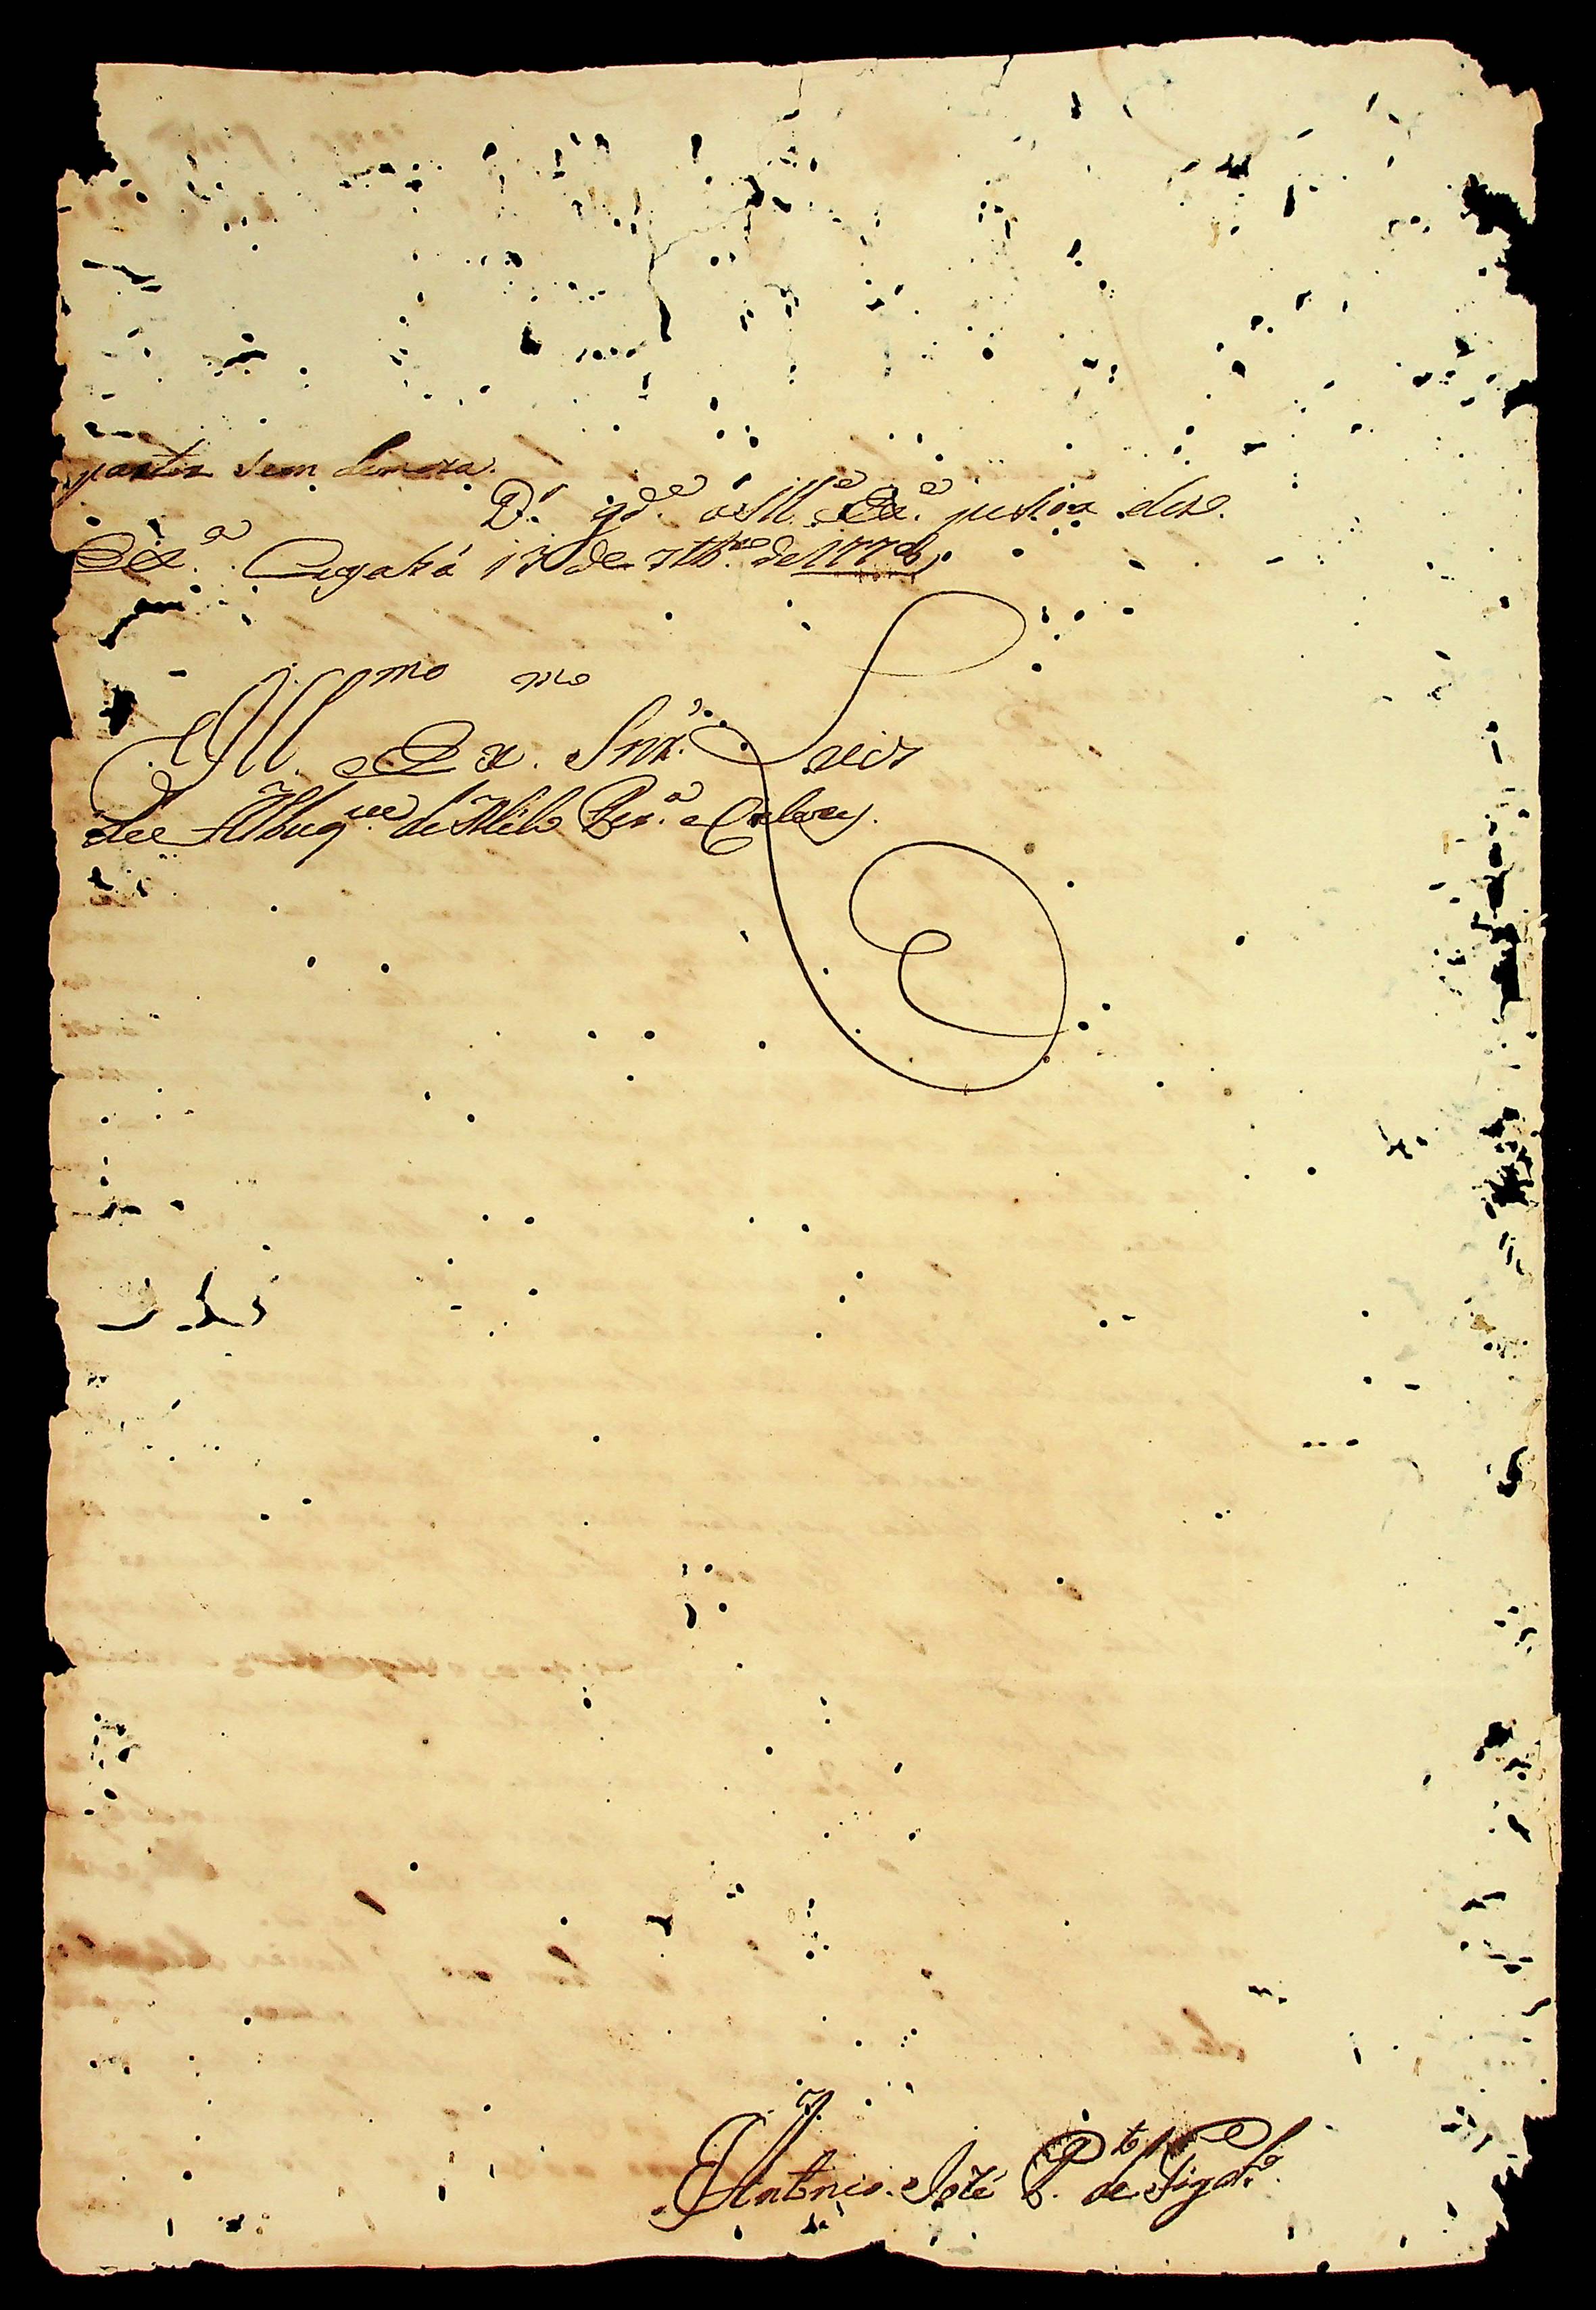 partir sem demora.
D.s g.de a Ill.e Ex.a pessoa de V.
Ex.a Cuyabá 13 de 7tbr.o de 1778
Ill.mo e Ex.mo Snr.' Luis
de Albuq.ue de Mello Per.a e Caceres.
Antonio José P.to de Figd.o